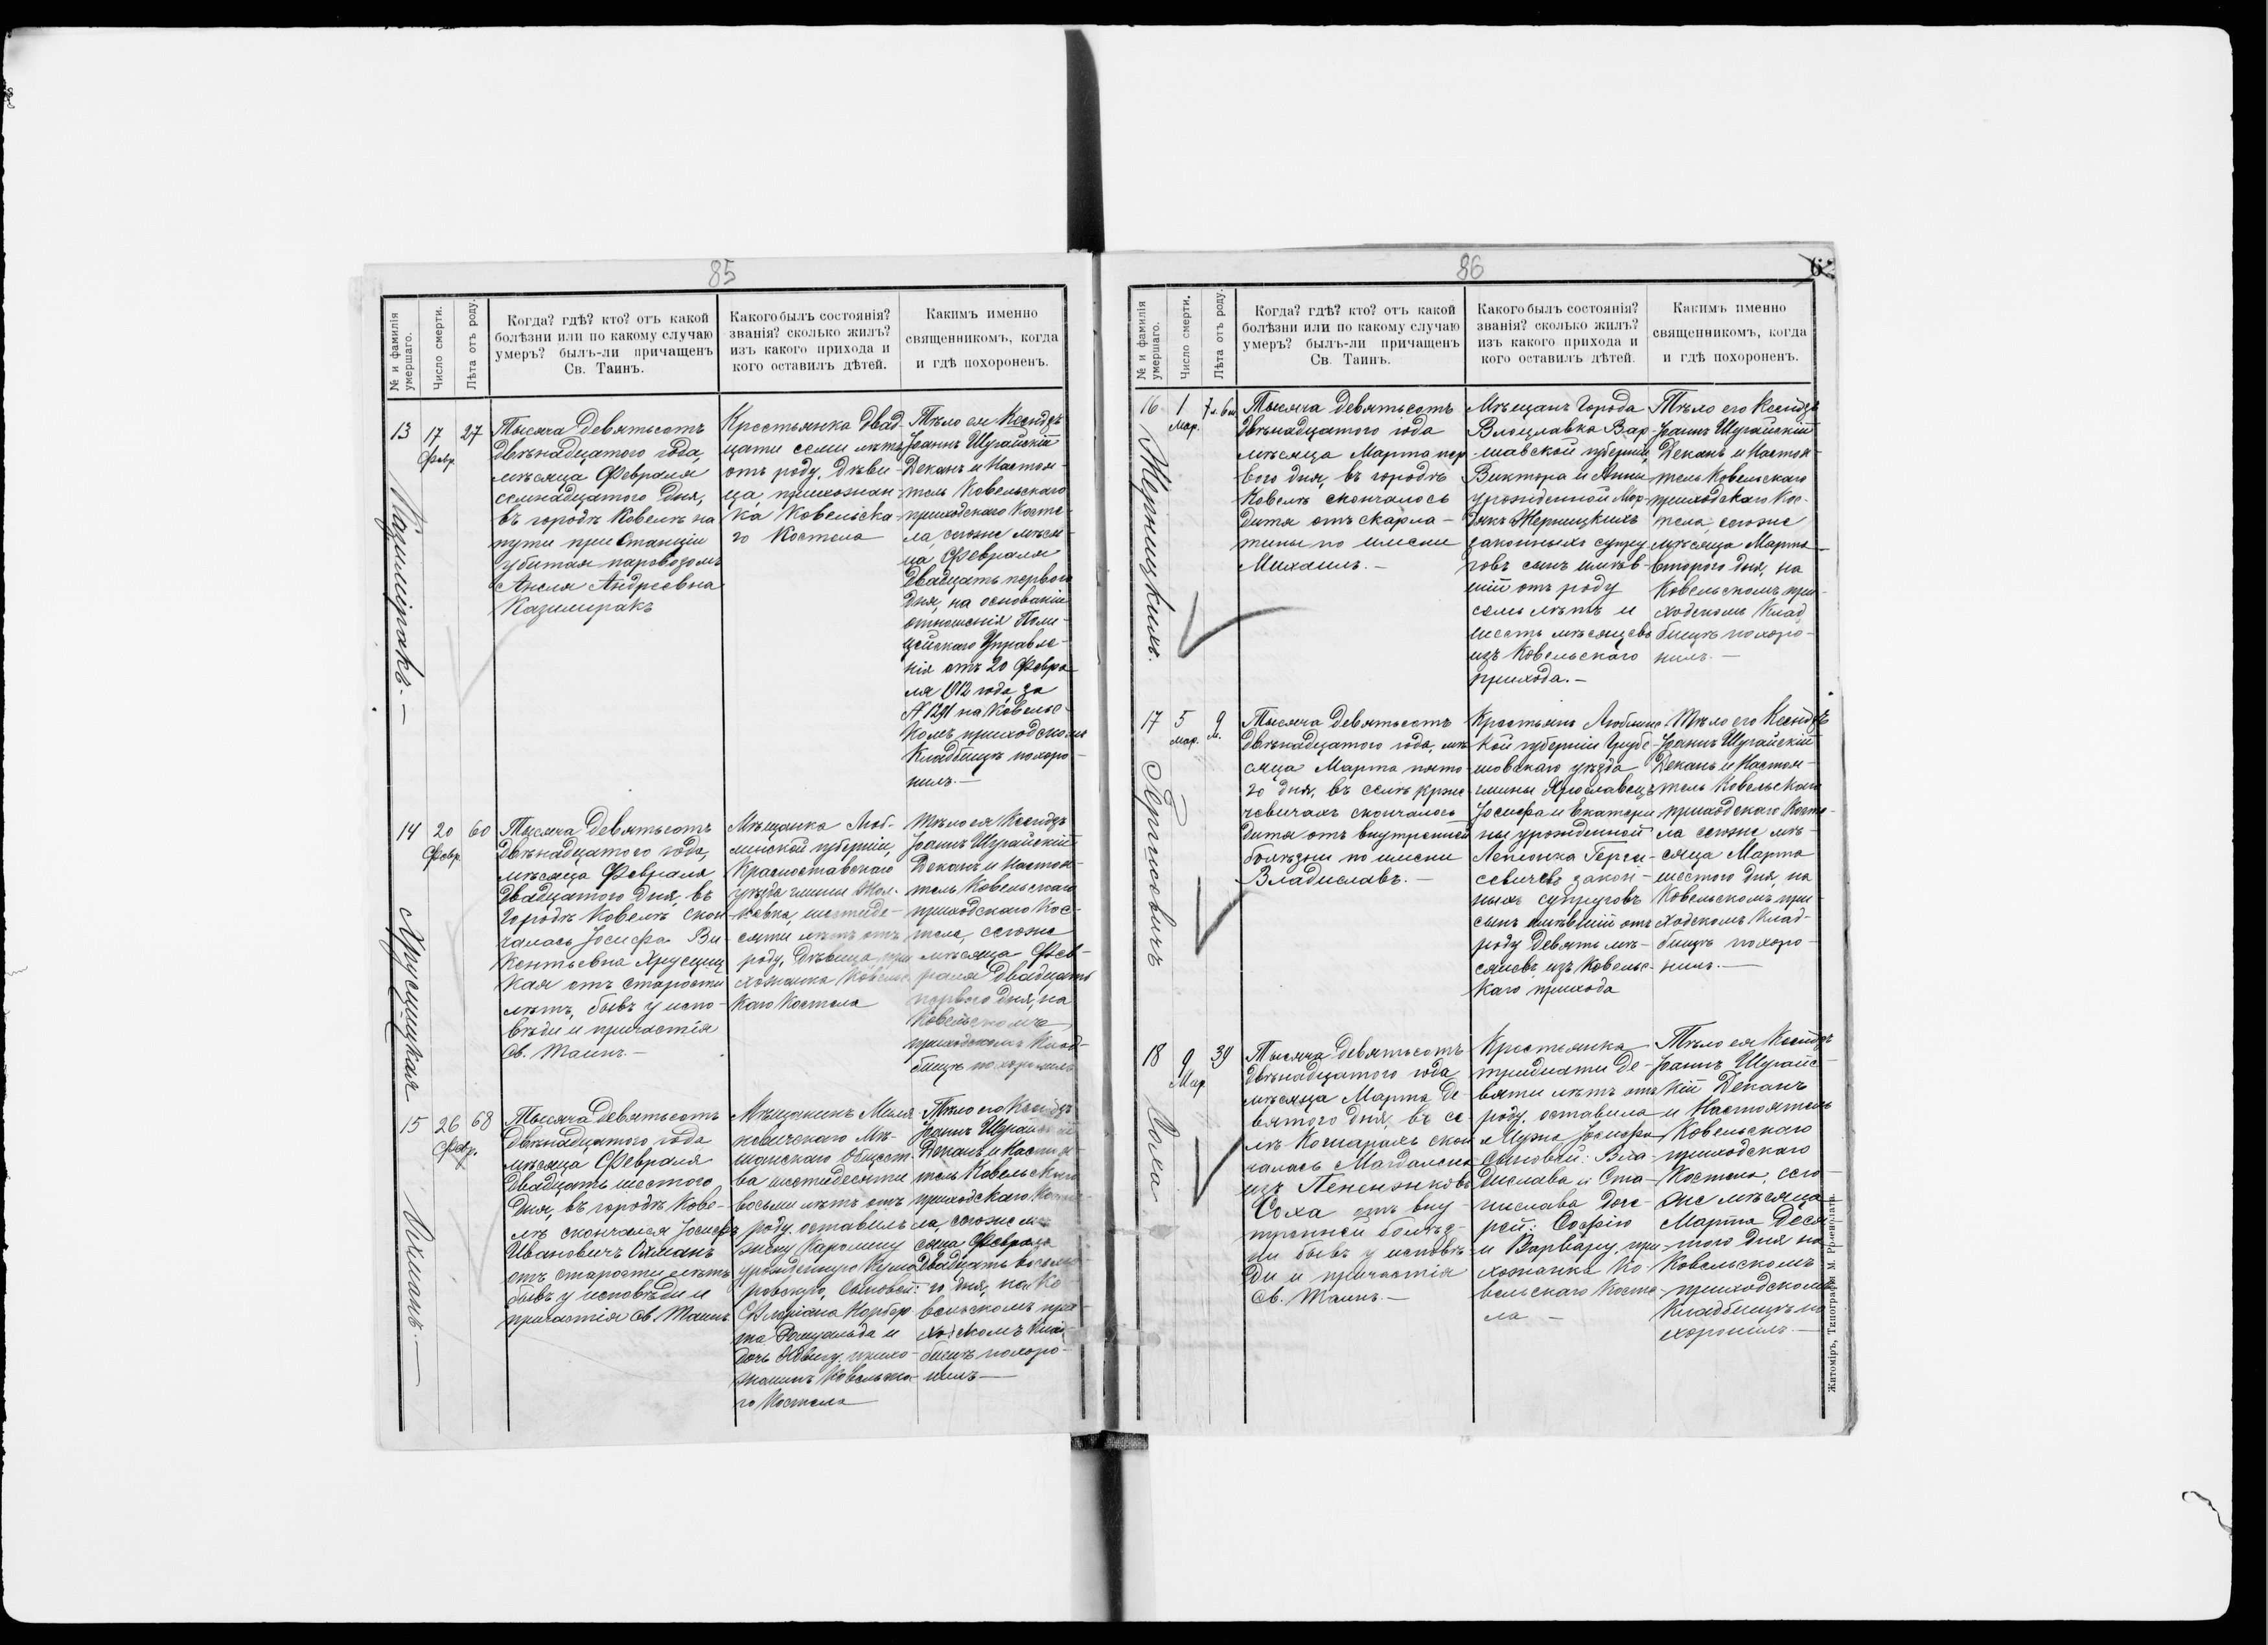 85
№ и фамилія умершаго.
Число смерти.
Лѣта отъ роду.
Когда? гдѣ? кто? отъ какой
болѣзни или по какому случаю
умеръ? былъ-ли причащенъ
Св. Таинъ.
Какого былъ состоянія?
званія? сколько жилъ?
изъ какого прихода и
кого оставилъ дѣтей.
Какимъ именно
священникомъ, когда
и гдѣ похороненъ.
13
Казиміракъ.
17
Февр.
27
Тысяча девятьсотъ
двѣнадцатого года,
мѣсяца Февраля
семнадцатого дня,
въ городѣ Ковелѣ на
пути при Станціи
убитая паровозомъ
Анеля Андреевна
Казимиракъ
Крестьянка двад-
цати семи лѣтъ
отъ роду, дѣви-
ца прихожан-
ка Ковельска-
го Костела
Тѣло ея Ксендзъ
Іоаннъ Шугайскій
Деканъ и Настоя-
тель Ковельскаго
приходскаго Косте-
ла, сегоже мѣся-
ца Февраля
двадцать перваго
дня, на основаніи
отношенія Поли-
цейскаго Управле-
нія отъ 20 Февра-
ля 1912 года за
№ 1291 на Ковельс-
комъ приходскомъ
Кладбищѣ похоро-
нилъ.—
14
Хрусцицкая
20
Февр.
60
Тысяча девятьсотъ
двѣнадцатого года,
мѣсяца Февраля
двадцатого дня, въ
городѣ Ковелѣ скон-
чалась Іосифа Ви-
кентьевна Хрусциц
кая отъ старости
лѣтъ, бывъ у испо-
вѣди и причастія
Св. Таинъ.—
Мѣщанка Люб-
линской губерніи,
Красноставскаго
уѣзда гмины Жол-
кевка, шестиде-
сяти лѣтъ отъ
роду, дѣвица, при
хожанка Ковельс
каго Костела
Тѣло ея Ксендзъ
Іоаннъ Шугайскій
Деканъ и Настоя-
тель Ковельскаго
приходскаго Кос-
тела, сегоже
мѣсяца Фев-
раля двадцать
перваго дня, на
Ковельскомъ
приходскомъ Клад-
бищѣ похоронилъ
15
Охманъ.—
26
Февр.
68
Тысяча девятьсотъ
двѣнадцатого года
мѣсяца Февраля
двадцать шестого
дня, въ городѣ Кове-
лѣ скончался Іосифъ
Ивановичъ Охманъ
отъ старости лѣтъ
бывъ у исповѣди и
причастія Св. Таинъ
Мѣщанинъ
Мѣ-
щанскаго Общест-
ва шестидесяти
восьми лѣтъ отъ
роду, оставилъ
жену Каролину
урожденную
Сыновей:
Флоріана Норбер-
та Ромуальда и
дочь Ядвигу, прихо-
жанинъ Ковельска-
го Костела
Тѣло его Ксендзъ
Іоаннъ Шугайскій
Деканъ и Настоя-
тель Ковельскаго
приходскаго Косте-
ла, сегоже мѣ-
сяца Февраля
двадцать восьмо-
го дня, на Ко-
вельскомъ при-
ходскомъ Клад-
бищѣ похоро-
нилъ—
86
6
№ и фамилія умершаго.
Число смерти.
Лѣта отъ роду.
Когда? гдѣ? кто? отъ какой
болѣзни или по какому случаю
умеръ? былъ-ли причащенъ
Св. Таинъ.
Какого былъ состоянія?
званія? сколько жилъ?
изъ какого прихода и
кого оставилъ дѣтей.
Какимъ именно
священникомъ, когда
и гдѣ похороненъ.
16
Жерницкихъ.
1
Мар.
7 л. 6 м.
Тысяча девятьсотъ
двѣнадцатого года
мѣсяца Марта пер-
вого дня, въ городѣ
Ковелѣ скончалось
дитя отъ скарла-
тины по имени
Михаилъ.—
Мѣщанъ Города
Влоцлавка Вар-
шавской губерніи,
Виктора и Анны
урожденной Мор-
дякъ Жерницкихъ
законныхъ супру
говъ сынъ имѣв-
шій отъ роду
семь лѣтъ и
шесть мѣсяцевъ
изъ Ковельскаго
прихода.—
Тѣло его Ксендзъ
Іоаннъ Шугайскій
Деканъ и Настоя-
тель Ковельскаго
приходскаго Кос-
тела, сегоже
мѣсяца Марта
второго дня, на
Ковельскомъ при-
ходскомъ Клад
бищѣ похоро-
нилъ.—
17
Гергисевичъ
5
мар.
9
м.
Тысяча девятьсотъ
двѣнадцатого года, мѣ
сяца Марта пято-
го дня, въ селѣ Крже
чевичахъ скончалось
дитя отъ внутренней
болѣзни по имени
Владиславъ.—
Крестьянъ Люблинс
кой губерніи Грубе-
шовскаго уѣзда
гмины Ярославецъ
Іосифа и Екатери
ны урожденной
Гергисевичевъ закон-
ныхъ супруговъ
сынъ имѣвшій отъ
роду девять мѣ-
сяцевъ изъ Ковельс-
каго прихода
Тѣло его Ксендзъ
Іоаннъ Шугайскій
Деканъ и Настоя-
тель Ковельскаго
приходскаго Косте-
ла сегоже мѣ-
сяца Марта
шестого дня, на
Ковельскомъ при-
ходскомъ Клад-
бищѣ похоро-
нилъ.—
18
Соха
9
Мар.
39
Тысяча девятьсотъ
двѣнадцатого года
мѣсяца Марта де
вятого дня, въ се-
лѣ Кошарахъ скон
чалась Магдалена
изъ Пененжковъ
Соха отъ вну-
тренней болѣз-
ни бывъ у исповѣ-
ди и причастія
Св. Таинъ.—
Крестьянка
тридцати де-
вяти лѣтъ отъ
роду, оставила
мужа Іосифа
Сыновей: Вла-
дислава и Ста-
нислава доче-
рей: Софію
и Варвару, при-
хожанка Ко-
вельскаго Косте-
ла —
Тѣло ея Ксендзъ
Іоаннъ Шугайс-
кій Деканъ
и Настоятель
Ковельскаго
приходскаго
Костела, сего
же мѣсяца
Марта деся-
того дня на
Ковельскомъ
приходскомъ
Кладбищѣ по
хоронилъ—
Житоміръ, Типографія М.